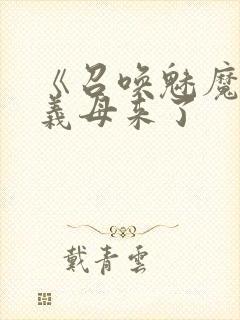 《召唤魅魔
義母来了
戴青雲